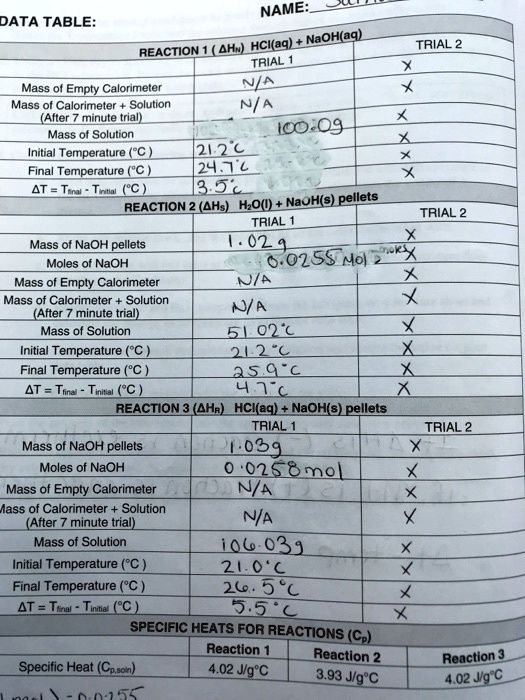 NAME:
DATA TABLE:
REACTION 1 ( ΔHN) HCl(aq) + NaOH(aq)
TRIAL 1 TRIAL 2
X
Mass of Empty Calorimeter N/A X
Mass of Calorimeter + Solution
(After 7 minute trial) N/A X
Mass of Solution 100.09 X
Initial Temperature (°C ) 21.2°C X
Final Temperature (°C ) 24.7°C X
ΔT = Tfinal - Tinitial (°C ) 3.5°C
REACTION 2 (ΔHs) H₂O(l) + NaOH(s) pellets
TRIAL 1 TRIAL 2
Mass of NaOH pellets 1.02g X
Moles of NaOH 0.0255 Mol moles X
Mass of Empty Calorimeter N/A X
Mass of Calorimeter + Solution
(After 7 minute trial) N/A X
Mass of Solution 51.02°C X
Initial Temperature (°C ) 21.2°C X
Final Temperature (°C ) 25.9°C X
ΔT = Tfinal - Tinitial (°C ) 4.7°C X
REACTION 3 (ΔHR) HCl(aq) + NaOH(s) pellets
TRIAL 1 TRIAL 2
Mass of NaOH pellets 1.03g X
Moles of NaOH 0.0258mol X
Mass of Empty Calorimeter N/A X
Mass of Calorimeter + Solution
(After 7 minute trial) N/A X
Mass of Solution 106.03g X
Initial Temperature (°C ) 21.0°C X
Final Temperature (°C ) 26.5°C X
ΔT = Tfinal - Tinitial (°C ) 5.5°C X
SPECIFIC HEATS FOR REACTIONS (Cp)
Reaction 1 Reaction 2 Reaction 3
Specific Heat (Cp,soln) 4.02 J/g°C 3.93 J/g°C 4.02 J/g°C